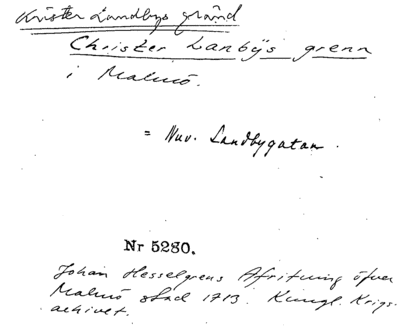 Krister Landbys gränd
Christer Lanbÿs grenn
i Malmö.
= Nuv. Landbygatan.
Nr 5280.
Johan Hesselgrens Afritning öfver
Malmö stad 1713. Kungl. Krigs-
arkivet.